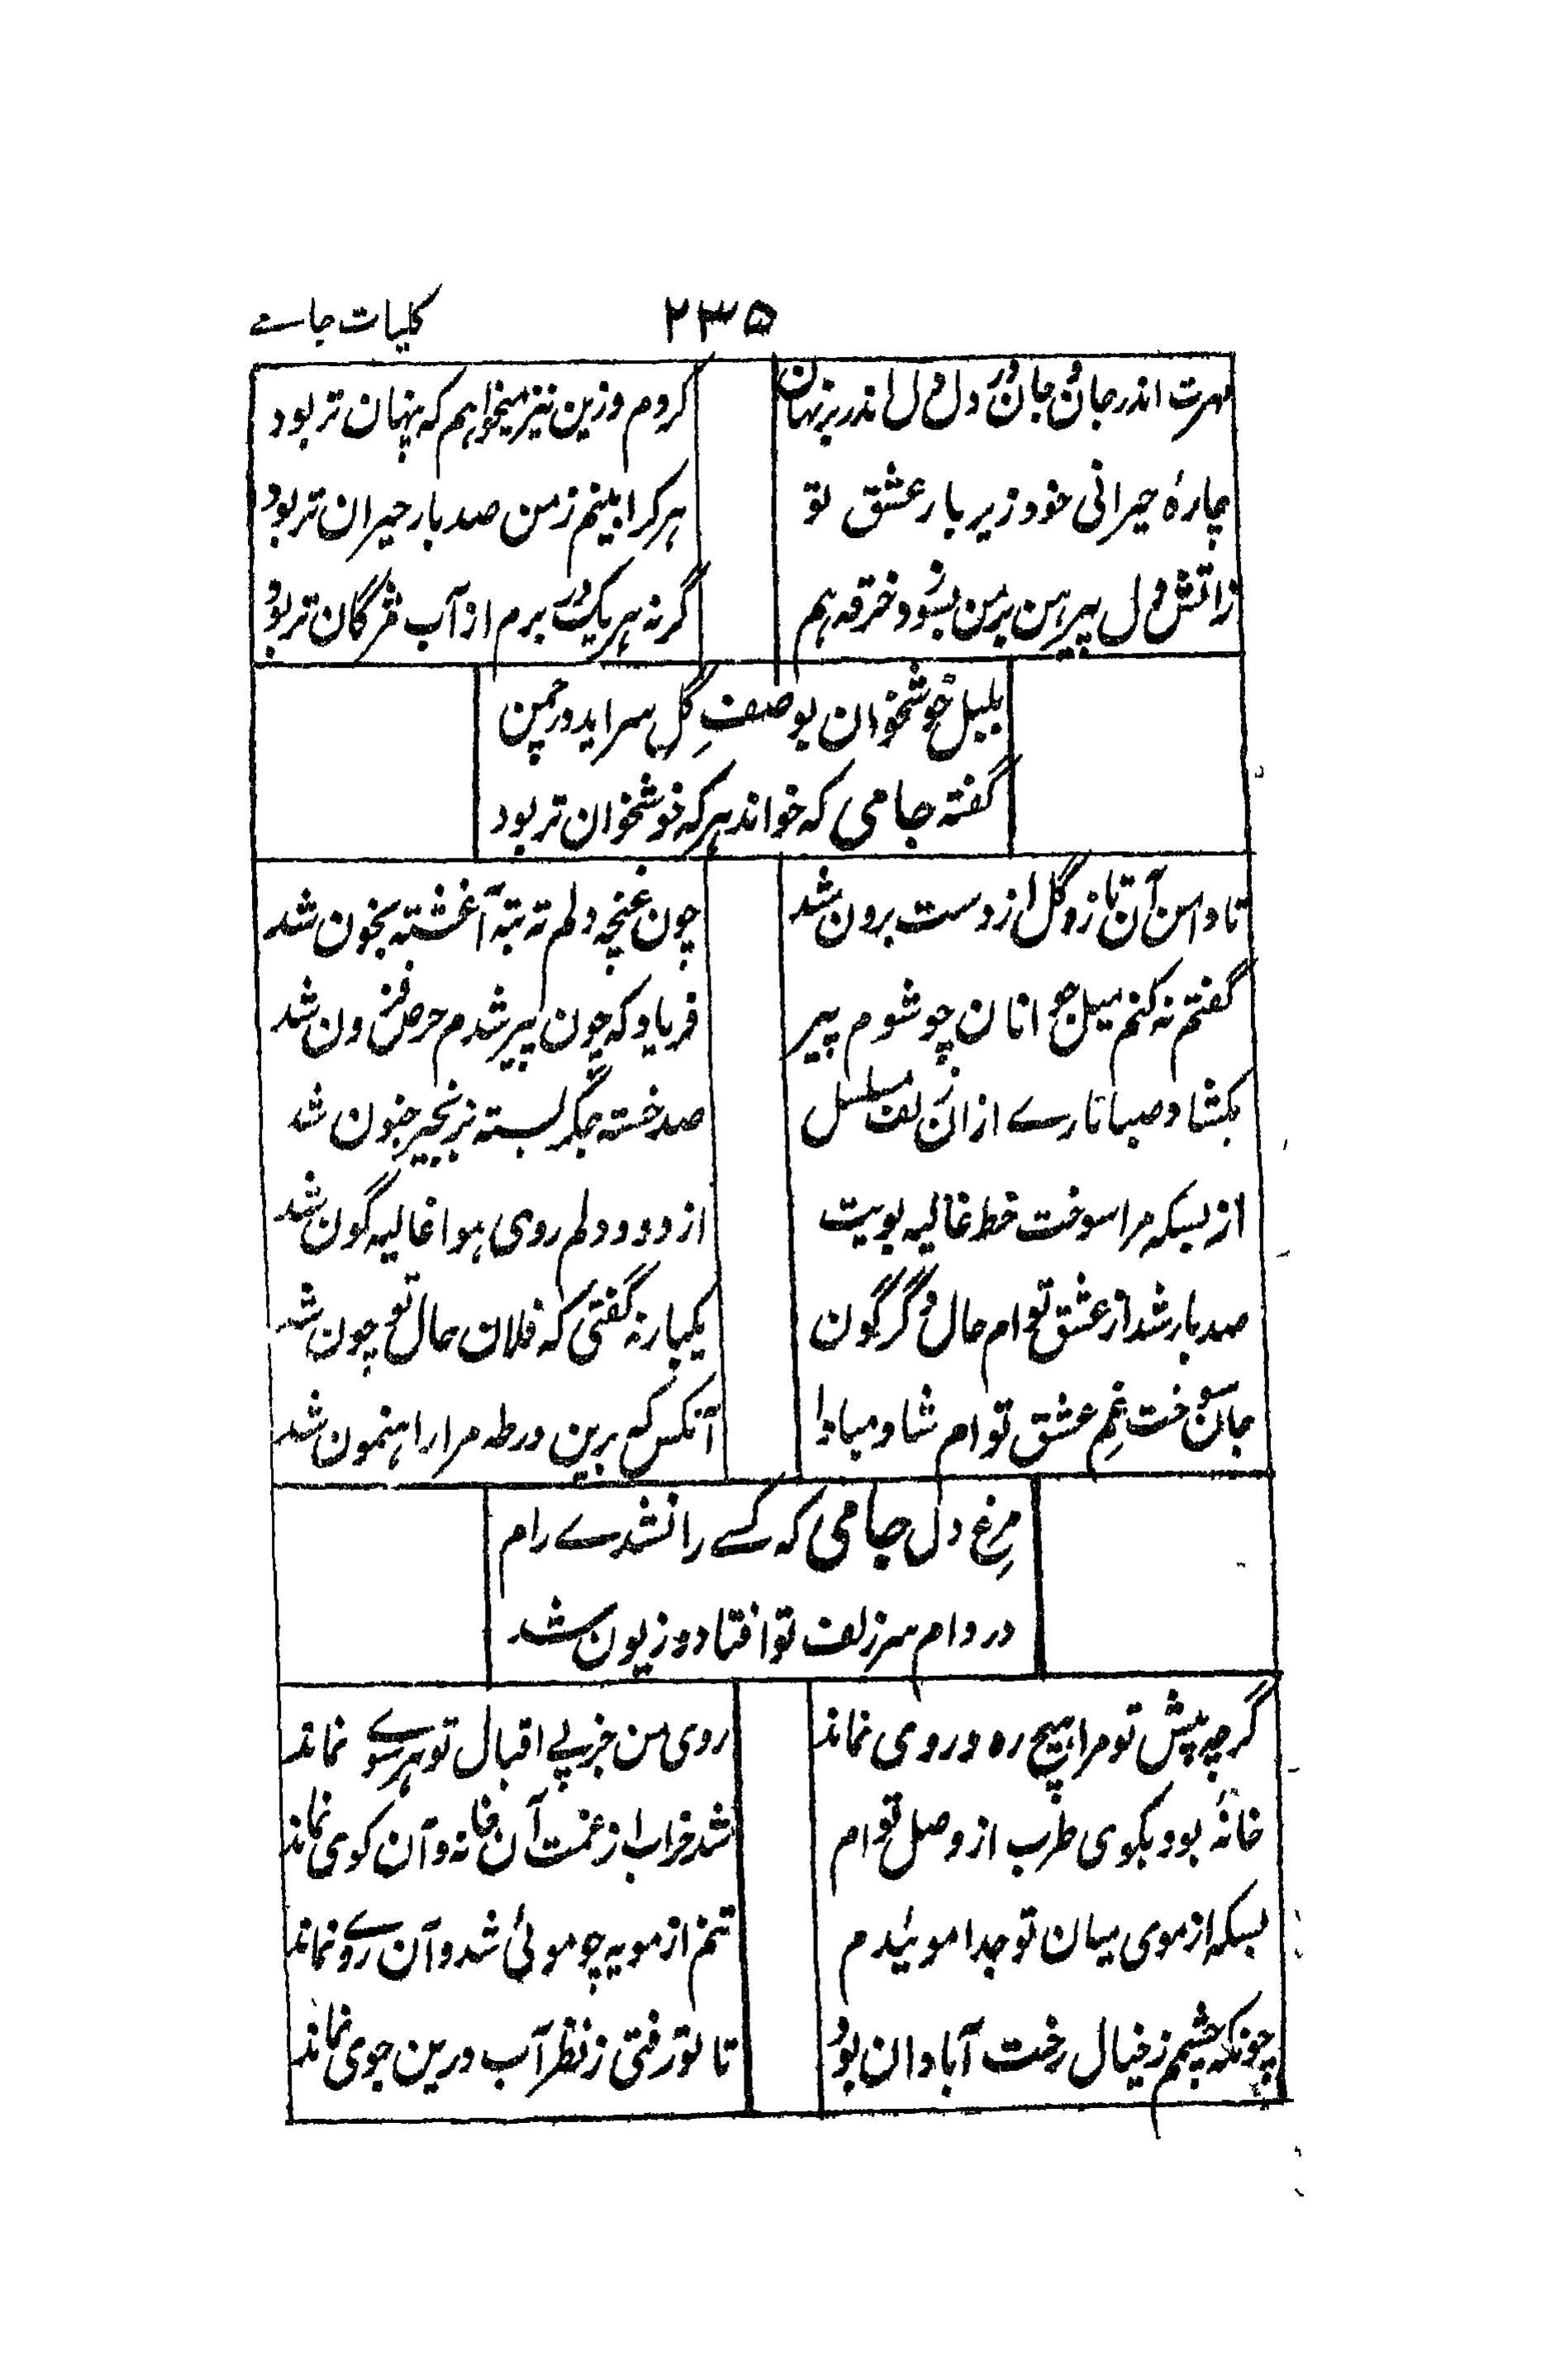 ۲۳۵
کلیات جامے
مهرت اندر جان و جان در دل و دل اندر بر نهان
کردم و زین نیز میخواهم که پنهان تر بود
چارهٔ حیرانی خود زیر بار عشق تو
هر کرا بینم ز من صد بار حیران تر بود
ز اتش دل پیرهن بر من بسوزد خرقه هم
گر نه هر یک در برم از آب مژگان تر بود
بلبل خوشخوان بوصفِ گل سراید در چمن
گفته جامی که خواند هر که خوشخوان تر بود
تا دامن آن تازه گل از دست برون شد
چون غنچه دلم ته بته آغشته بخون شد
گفتم نه کنم میل جوانان چو شوم پیر
فریاد که چون پیر شدم حرص فزون شد
بکشاد صبا تارے ازان زلف مسلسل
صد خسته جگر بسته زنجیر جنون شد
از بسکه مرا سوخت خط غالیه بویت
از دود دلم روی هوا غالیه گون شد
صد بار شد از عشق توام حال دگرگون
یکبار نه گفتی که فلان حال تو چون شد
جان سوخت غمِ عشق توام شاد مبادا
آنکس که برین ورطه مرا راهنمون شد
مرغِ دل جامی که کسے را نشدے رام
در دام سر زلف تو افتاد و زبون شد
گرچه پیش تو مرا هیچ ره و روی نماند
روی من جز پے اقبال تو هر سوے نماند
خانهٔ بود بکوی طرب از وصل توام
شد خراب از غمت آن خانه و آن کوی نماند
بسکه از موی میان تو جدا موئیدم
تنم از مویه چو موئی شد و آن روے نماند
چونکه چشمم ز خیال رخت آبادان بود
تا تو رفتی ز نظر آب درین جوی نماند